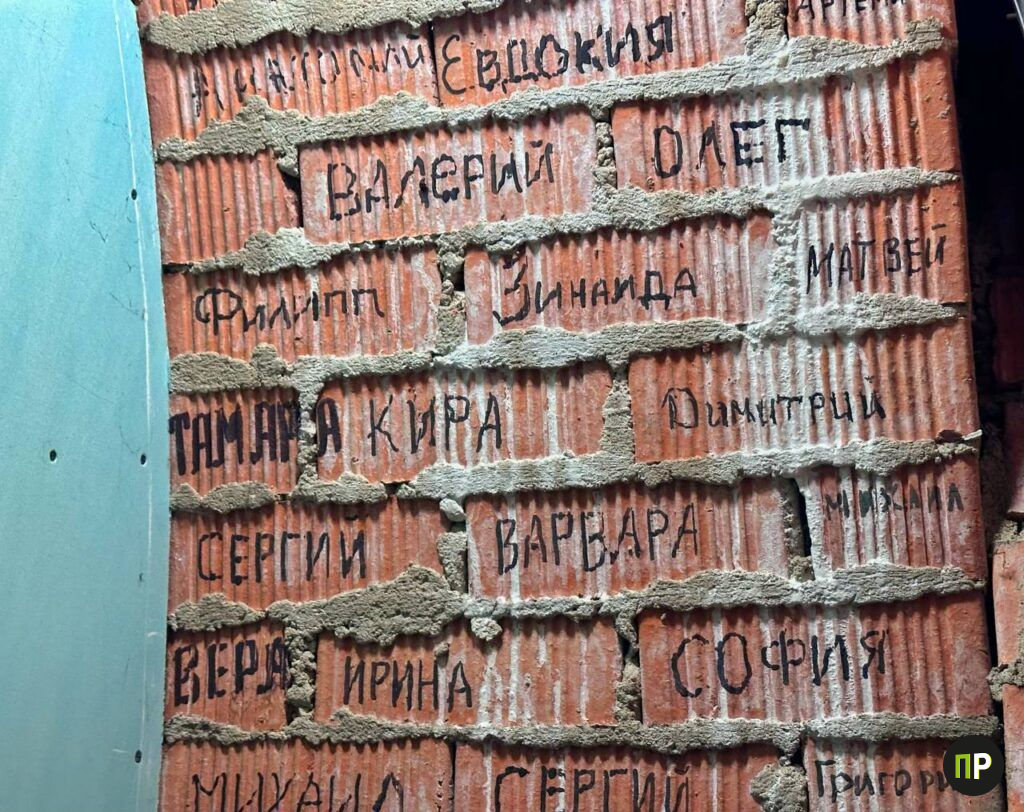 АНАТОЛИЙ ЕВДОКИЯ АРТЕМИ
ВАЛЕРИЙ ОЛЕГ
ФИЛИПП ЗИНАИДА МАТВЕЙ
ТАМАРА КИРА ДИМИТРИЙ
СЕРГИЙ ВАРВАРА МИХАИЛ
ВЕРА ИРИНА СОФИЯ
МИХАИЛ СЕРГИЙ ГРИГОРИ
ПР